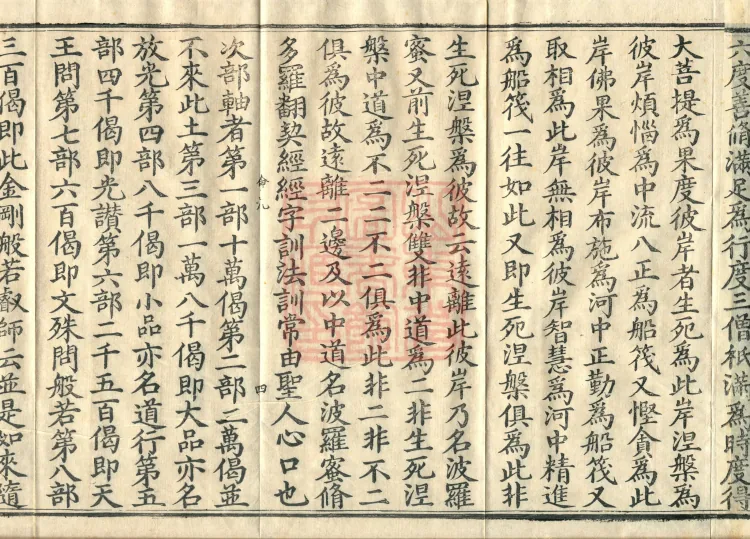 六度善脩滿足爲行度三僧祇滿爲時度得
大菩提爲果度彼岸者生死爲此岸涅槃爲
彼岸煩惱爲中流八正爲船筏又慳貪爲此
岸佛果爲彼岸布施爲河中正勤爲船筏又
取相爲此岸無相爲彼岸智慧爲河中精進
爲船筏一往如此又即生死涅槃俱爲此非
生死涅槃爲彼故云遠離此彼岸乃名波羅
蜜又前生死涅槃雙非中道爲二非生死涅
槃中道爲不二二不二俱爲此非二非不二
俱爲彼故遠離二邊及以中道名波羅蜜脩
多羅翻契經經字訓法訓常由聖人心口也
四
次部軸者第一部十萬偈第二部二萬偈並
不來此土第三部一萬八千偈即大品亦名
放光第四部八千偈即小品亦名道行第五
部四千偈即光讚第六部二千五百偈即天
王問第七部六百偈即文殊問般若第八部
三百偈即此金剛般若叡師云並是如來隨